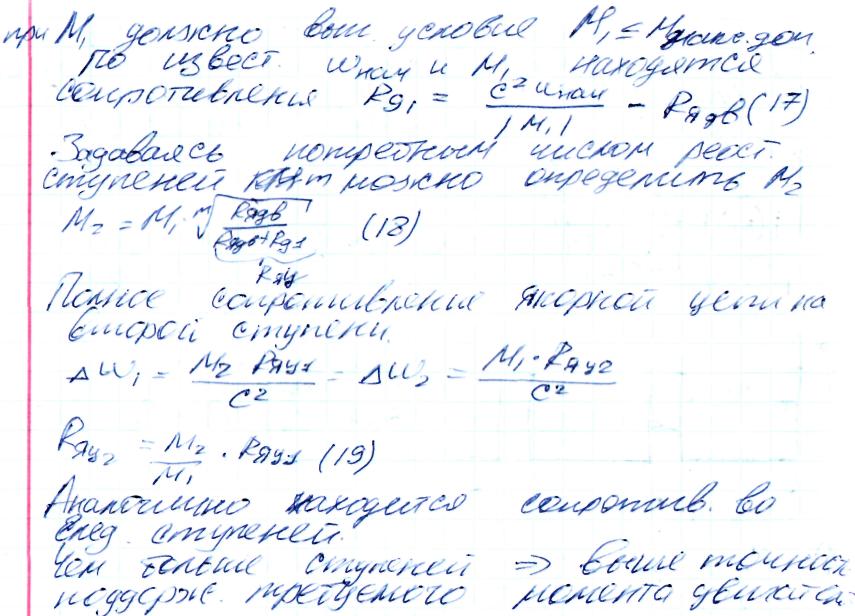 при M₁ должно вып. условие M₁ ≤ Mмакс.доп.
По извест. ωнач и M₁ находятся
сопротивления Rд₁ = c²ωнач / |M₁| − Rядв (17)
Задаваясь потребным числом реост.
ступеней m можно определить M₂
M₂ = M₁ · ᵐ√(Rядв / (Rядв+Rд1)) (18)
Rяц
Полное сопротивление якорной цепи на
второй ступени.
Δω₁ = M₂ Rяц1 / c² = Δω₂ = M₁ · Rяц2 / c²
Rяц₂ = M₂ / M₁ · Rяц1 (19)
Аналогично находится сопротив. во
след. ступеней.
Чем больше ступеней ⇒ выше точность
поддерж. требуемого момента двигател